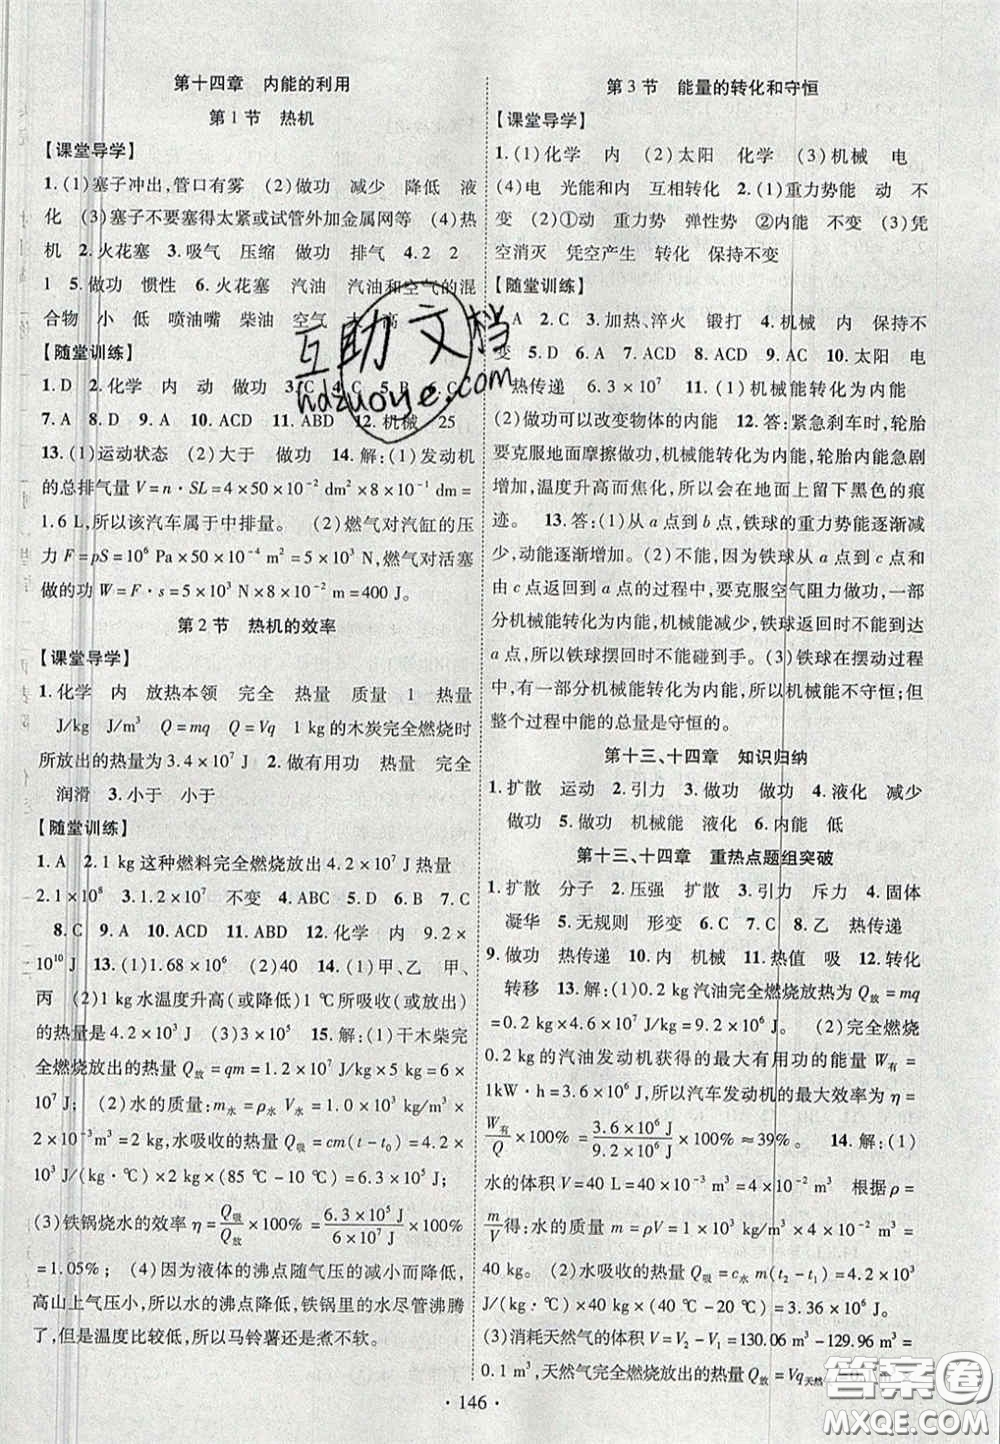 第十四章　内能的利用
第1节　热机
【课堂导学】
1. (1)塞子冲出,管口有雾　(2)做功　减少　降低　液
化　(3)塞子不要塞得太紧或试管外加金属网等　(4)热
机　2. 火花塞　3. 吸气　压缩　做功　排气　4. 2　2
1　5. 做功　惯性　6. 火花塞　汽油　汽油和空气的混
合物　小　低　喷油嘴　柴油　空气　大　高
【随堂训练】
1. D　2. 化学　内　动　做功　3. C　4. C　5. B　6. C
7. A　8. D　9. D　10. ACD　11. ABD　12. 机械　25
13. (1)运动状态　(2)大于　做功　14. 解:(1)发动机
的总排气量 V=n·SL=4×50×10⁻² dm²×8×10⁻¹ dm=
1.6 L,所以该汽车属于中排量。　(2)燃气对汽缸的压
力 F=pS=10⁶ Pa×50×10⁻⁴ m²=5×10³ N,燃气对活塞
做的功 W=F·s=5×10³ N×8×10⁻² m=400 J。
第2节　热机的效率
【课堂导学】
1. 化学　内　放热本领　完全　热量　质量　1　热量
J/kg　J/m³　Q=mq　Q=Vq　1 kg的木炭完全燃烧时
所放出的热量为3.4×10⁷ J　2. 做有用功　热量　完全
润滑　3. 小于　小于
【随堂训练】
1. A　2. 1 kg 这种燃料完全燃烧放出 4.2×10⁷ J 热量
2.1×10⁸　3. 1.2×10⁷　不变　4. ABC　5. D　6. B　7. C
8. C　9. A　10. ACD　11. ABD　12. 化学　内　9.2×
10¹⁰ J　13. (1)1.68×10⁶　(2)40　14. (1)甲、乙　甲、
丙　(2)1 kg 水温度升高(或降低)1 ℃所吸收(或放出)
的热量是 4.2×10³ J　(3)3×10⁵　15. 解:(1)干木柴完
全燃烧放出的热量 Q放=qm=1.2×10⁷ J/kg×5 kg=6×
10⁷ J;　(2)水的质量:m水=ρ水 V水=1.0×10³ kg/m³×
2×10⁻³m³=2 kg,水吸收的热量 Q吸=cm(t-t₀)=4.2×
10³ J/(kg·℃)×2 kg×(85 ℃-10 ℃)=6.3×10⁵ J;
(3)铁锅烧水的效率 η=Q吸/Q放×100%=6.3×10⁵ J/6×10⁷ J×100%
=1.05%;　(4)因为液体的沸点随气压的减小而降低,
高山上气压小,所以水的沸点低,铁锅里的水尽管沸腾
了,但是温度比较低,所以马铃薯还是煮不软。
第3节　能量的转化和守恒
【课堂导学】
1. (1)化学　内　(2)太阳　化学　(3)机械　电
(4)电　光能和内　互相转化　2. (1)重力势能　动　不
变　(2)①动　重力势　弹性势　②内能　不变　(3)凭
空消灭　凭空产生　转化　保持不变
【随堂训练】
1. A　2. C　3. 加热、淬火　锻打　4. 机械　内　保持不
变　5. D　6. D　7. ACD　8. ACD　9. ACD　10. 太阳　电
热传递　6.3×10⁷　11. (1)机械能转化为内能
(2)做功可以改变物体的内能　12. 答:紧急刹车时,轮胎
要克服地面摩擦做功,机械能转化为内能,轮胎内能急剧
增加,温度升高而焦化,所以会在地面上留下黑色的痕
迹。　13. 答:(1)从 a 点到 b 点,铁球的重力势能逐渐减
少,动能逐渐增加。(2)不能,因为铁球从 a 点到 c 点和
由 c 点返回到 a 点的过程中,要克服空气阻力做功,一部
分机械能转化为内能,机械能减少,铁球返回时不能到达
a 点,所以铁球摆回时不能碰到手。(3)铁球在摆动过程
中,有一部分机械能转化为内能,所以机械能不守恒,但
整个过程中能的总量是守恒的。
第十三、十四章　知识归纳
1. 扩散　运动　2. 引力　3. 做功　做功　4. 液化　减少
做功　5. 做功　机械能　液化　6. 内能　低
第十三、十四章　重热点题组突破
1. 扩散　分子　2. 压强　扩散　3. 引力　斥力　4. 固体
凝华　5. 无规则　形变　6. C　7. C　8. 乙　热传递
9. 做功　热传递　10. 内　机械　11. 热值　吸　12. 转化
转移　13. 解:(1)0.2 kg 汽油完全燃烧放热为 Q放=mq
=0.2 kg×4.6×10⁷ J/kg=9.2×10⁶ J。　(2)完全燃烧
0.2 kg 的汽油发动机获得的最大有用功的能量 W有=
1kW·h=3.6×10⁶ J,所以汽车发动机的最大效率为 η=
W有/Q×100%=3.6×10⁶ J/9.2×10⁶ J×100%≈39%。　14. 解:(1)
水的体积 V=40 L=40×10⁻³ m³=4×10⁻² m³　根据 ρ=
m/V得:水的质量 m=ρV=1×10³ kg/m³×4×10⁻² m³=
40 kg。　(2)水吸收的热量 Q吸=c水 m(t₂-t₁)=4.2×10³ J/
(kg·℃)×40 kg×(40 ℃-20 ℃)=3.36×10⁶ J。
(3)消耗天然气的体积 V=V₂-V₁=130.06 m³-129.96 m³=
0.1 m³,天然气完全燃烧放出的热量 Q放=Vq天然
· 146 ·
互助文档
hdzuoye.com
答案圈
MXQE.COM